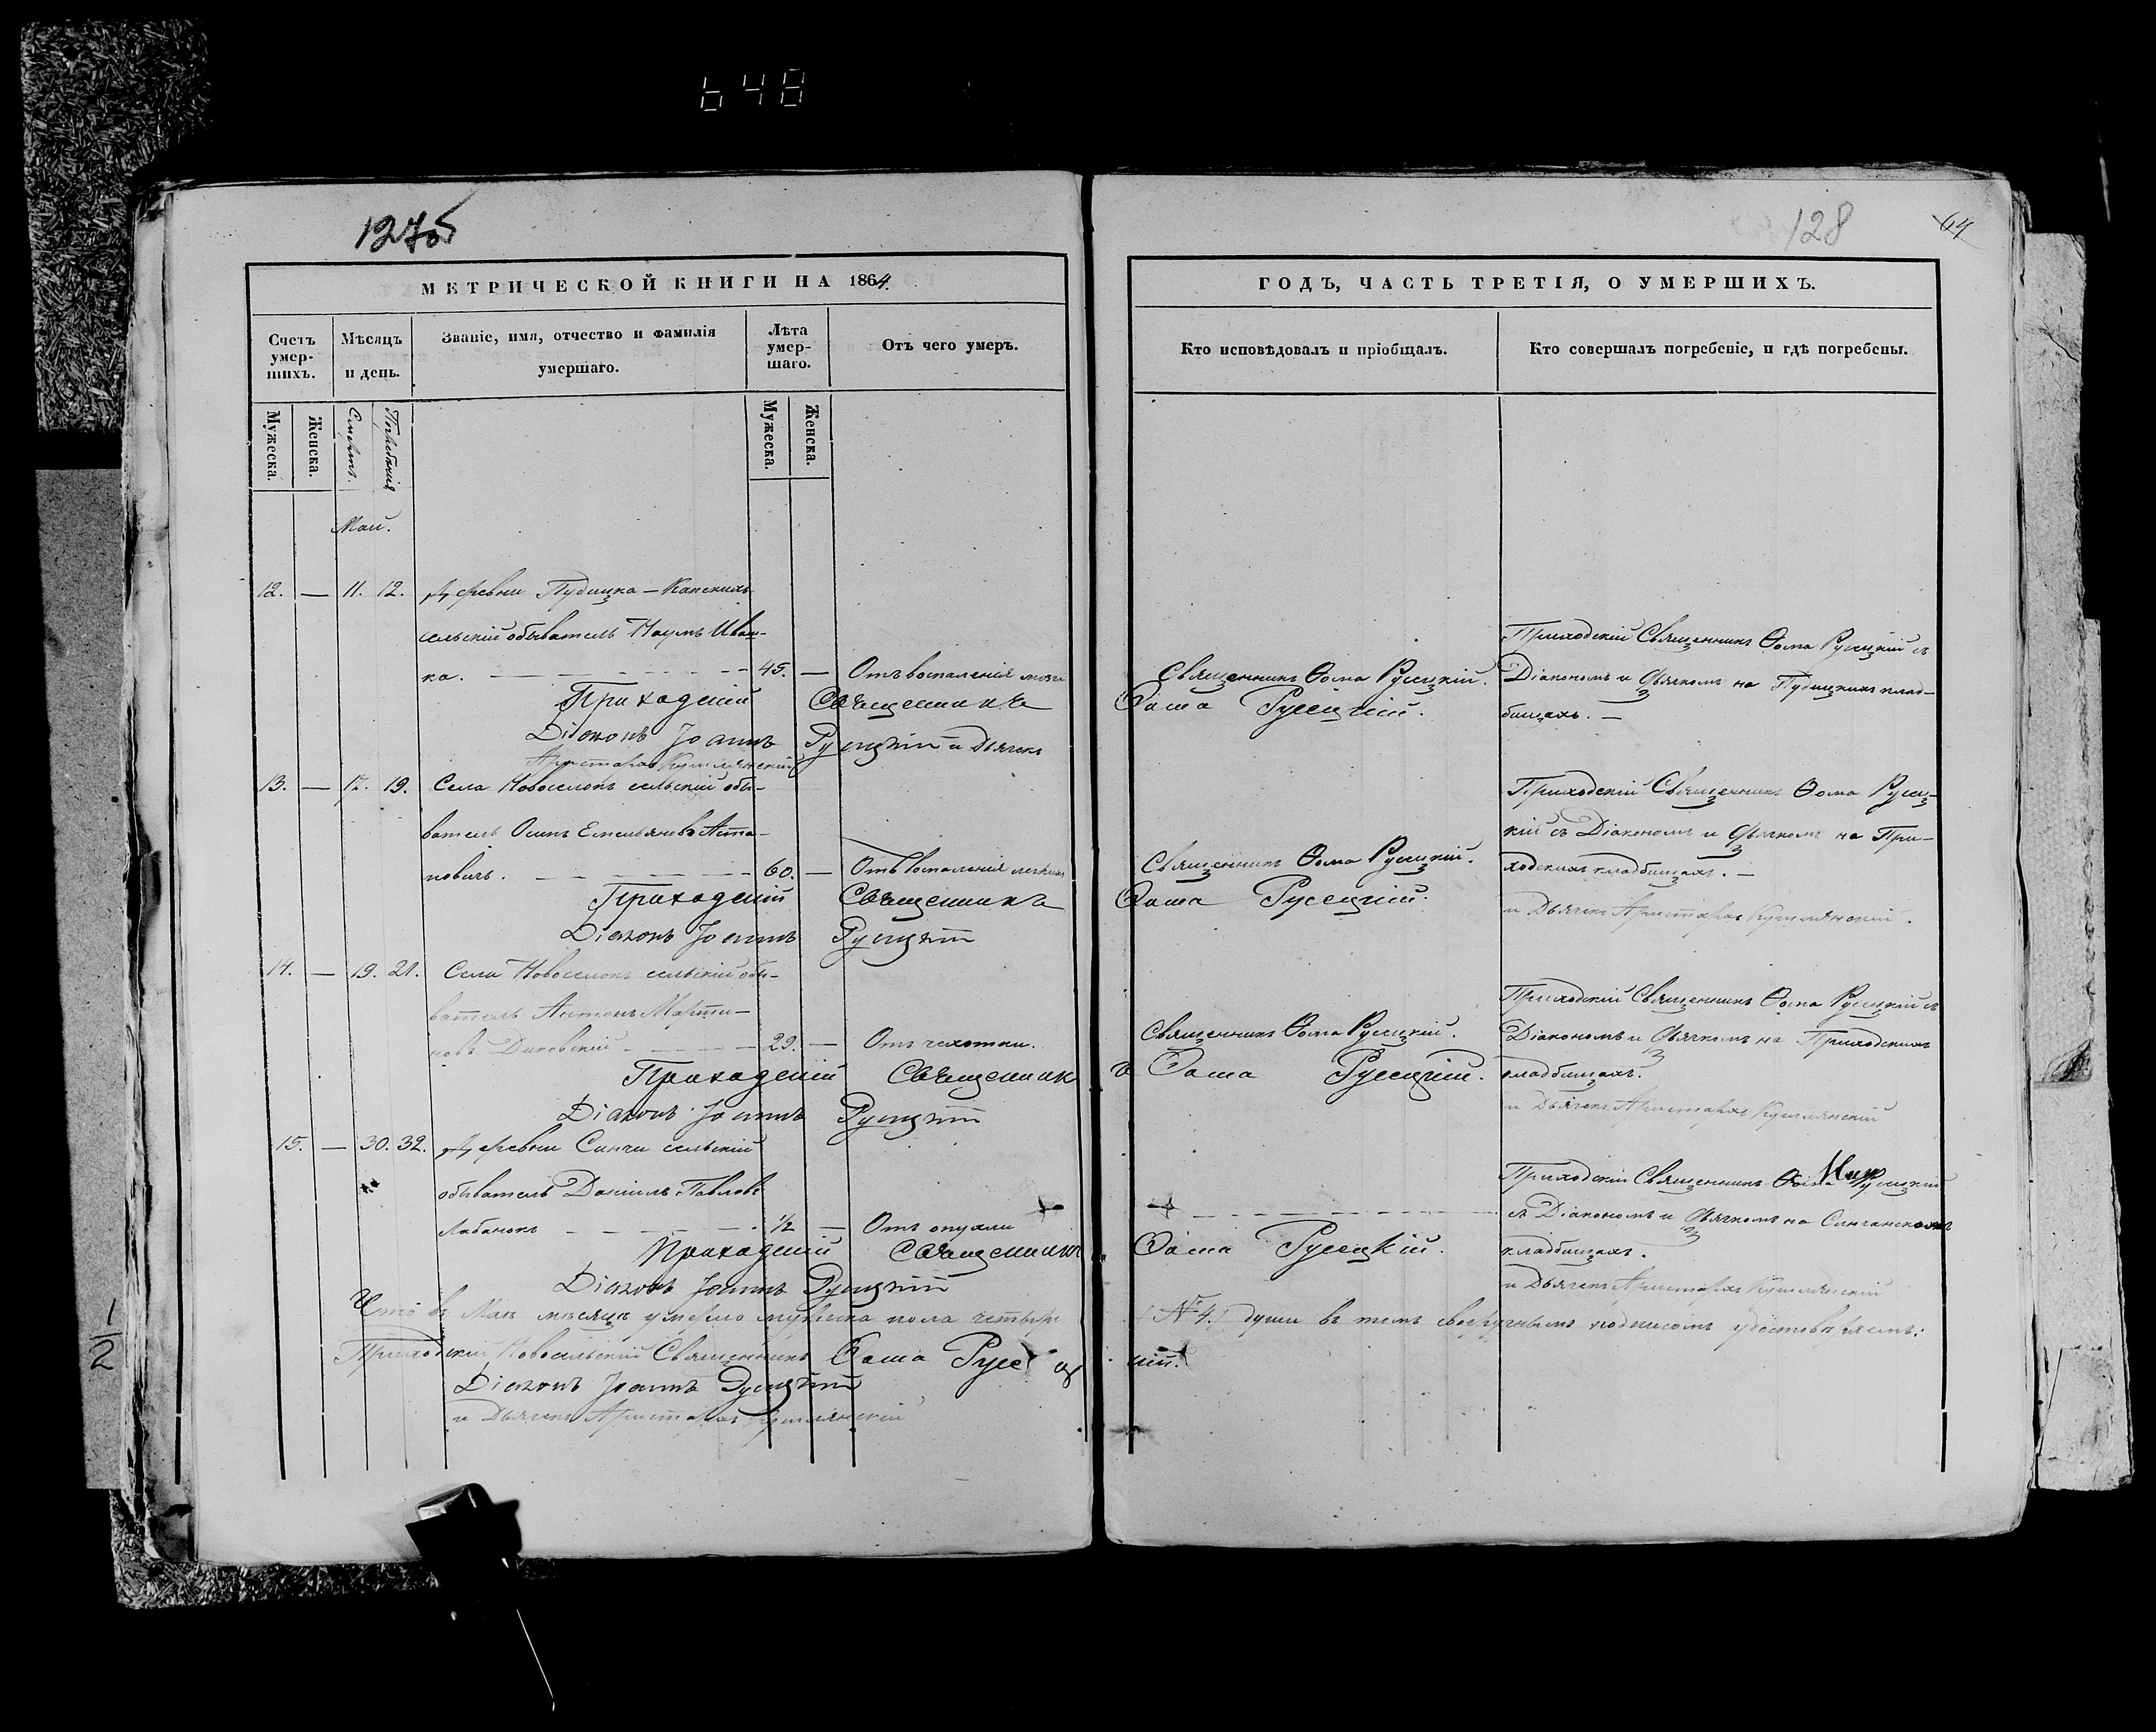 648
127об
128
64
МЕТРИЧЕСКОЙ КНИГИ НА 1864
ГОДЪ, ЧАСТЬ ТРЕТІЯ, О УМЕРШИХЪ.
Счетъ умер-шихъ.
Мѣсяцъ и день.
Званіе, имя, отчество и фамилія умершаго.
Лѣта умер-шаго.
Отъ чего умеръ.
Кто исповѣдовалъ и пріобщалъ.
Кто совершалъ погребеніе, и гдѣ погребены.
Мужеска.
Женска.
Смерти.
Погребенія
Мужеска.
Женска.
Май.
12. — 11. 12. Деревни
сельскій обыватель Наумъ Иван-
ка. — 45. — Отъ воспаленія мозга
Священникъ Ѳома Русецкій.
Приходскій Священникъ Ѳома Русецкій съ
Діакономъ и Дьячкомъ на клад-
бищахъ. —
Приходскій Священникъ Ѳома Русецкій.
Діаконъ Іоаннъ Русецкій и Дьячекъ
Аристархъ
13. — 17. 19. Села Новоселокъ сельскій обы-
ватель Осипъ Емельяновъ Аста-
повичъ. — 60. — Отъ воспаленія легкихъ
Священникъ Ѳома Русецкій.
Приходскій Священникъ Ѳома Русец-
кій съ Діакономъ и Дьячкомъ на При-
ходскихъ кладбищахъ. —
Приходскій Священникъ Ѳома Русецкій.
Діаконъ Іоаннъ Русецкій
и Дьячекъ Аристархъ
14. — 19. 21. Села Новоселокъ сельскій обы-
ватель Антонъ Марти-
новъ — 29. — Отъ чахотки.
Священникъ Ѳома Русецкій.
Приходскій Священникъ Ѳома Русецкій съ
Діакономъ и Дьячкомъ на Приходскихъ
кладбищахъ.
Приходскій Священникъ Ѳома Русецкій.
Діаконъ Іоаннъ Русецкій
и Дьячекъ Аристархъ
15. — 30. 32. Деревни Синчи сельскій
обыватель Даніилъ Павловъ
Лабанокъ — 1/2 — Отъ опухли
Приходскій Священникъ Русецкій
съ Діакономъ и Дьячкомъ на
кладбищахъ.
Приходскій Священникъ Ѳома Русецкій.
Діаконъ Іоаннъ Русецкій
и Дьячекъ Аристархъ
Что въ Маѣ мѣсяцѣ умерло мужеска пола четыре № 4. души въ томъ своеручнымъ подписомъ удостовѣряемъ:
Приходскій Новосельскій Священникъ Ѳома Русецкій.
Діаконъ Іоаннъ Русецкій
и Дьячекъ Аристархъ
1/2